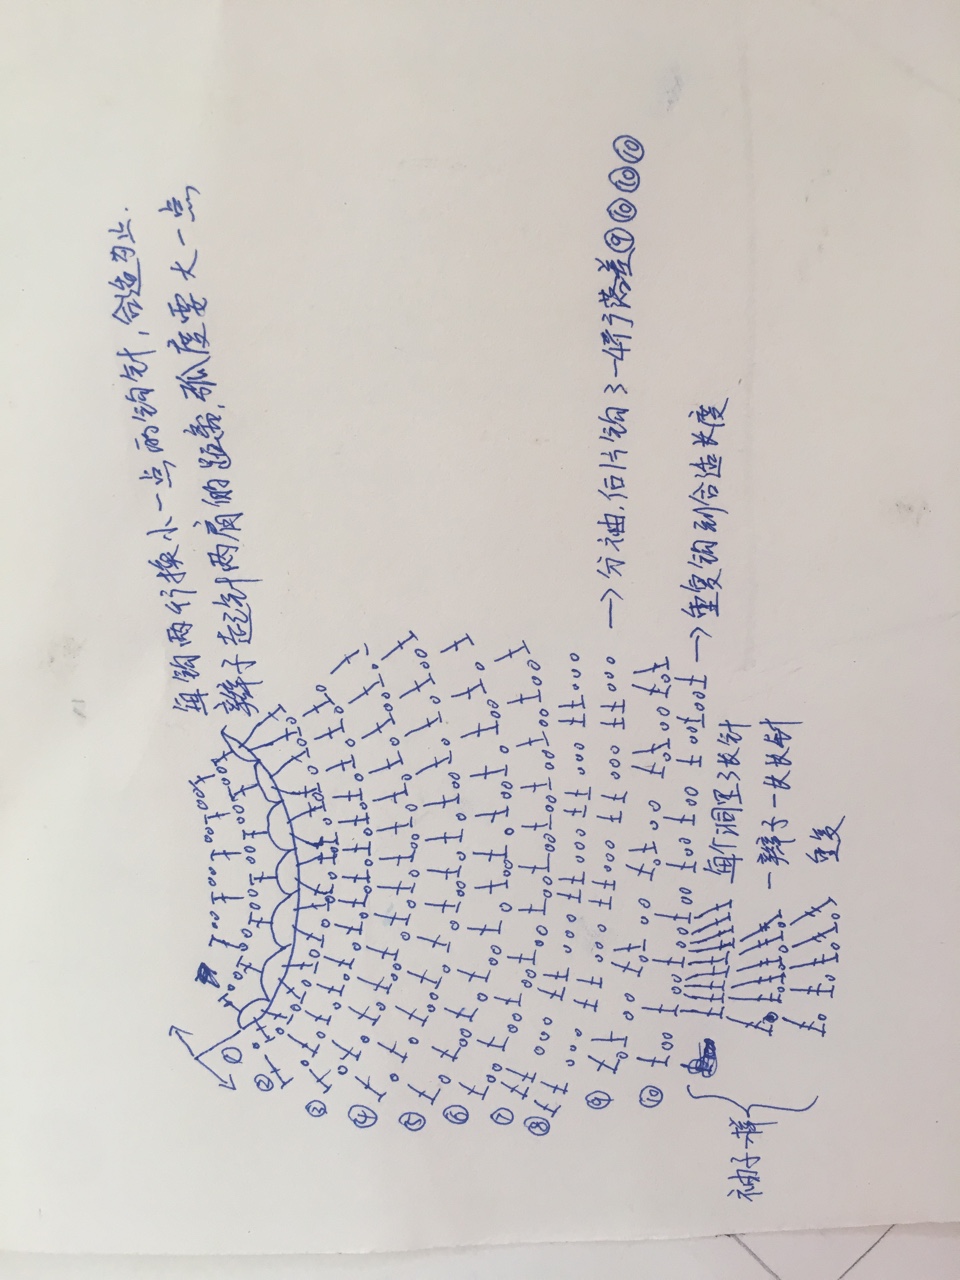 每钩两行换小一点的钩针，合适为止.
辫子起针两肩的距离，弧度要大一点
①
②
③
④
⑤
⑥
⑦
⑧
⑨
→分袖,后片钩3-4行落差⑨⑩⑩⑩
⑩
→重复钩到合适长度
每个洞里3长针
一辫子一长长针
重复
袖子一样